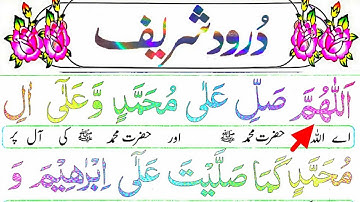 درود شریف
اَللّٰهُمَّ صَلِّ عَلٰی مُحَمَّدٍ وَّعَلٰۤی اٰلِ
اے اللہ حضرت محمد ﷺ اور حضرت محمد ﷺ کی آل پر
مُحَمَّدٍ كَمَا صَلَّیْتَ عَلٰۤی اِبْرٰهِیْمَ وَ